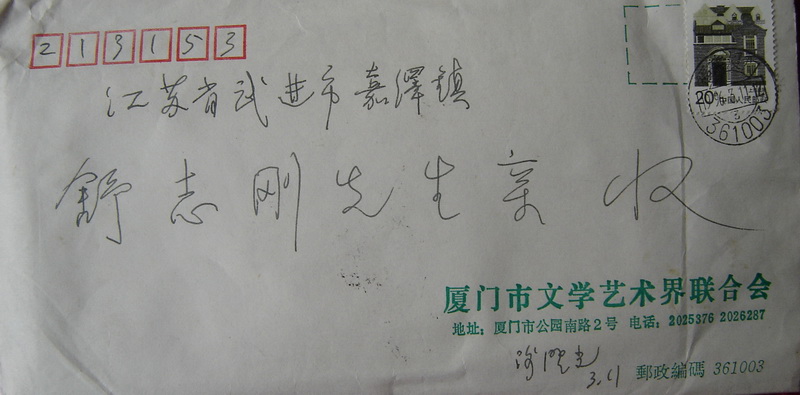 213153
20 中国人民邮政
361003
江苏省武进市嘉泽镇
舒志刚先生亲收
厦门市文学艺术界联合会
地址：厦门市公园南路2号 电话：2025376 2026287
3.11
郵政編碼 361003